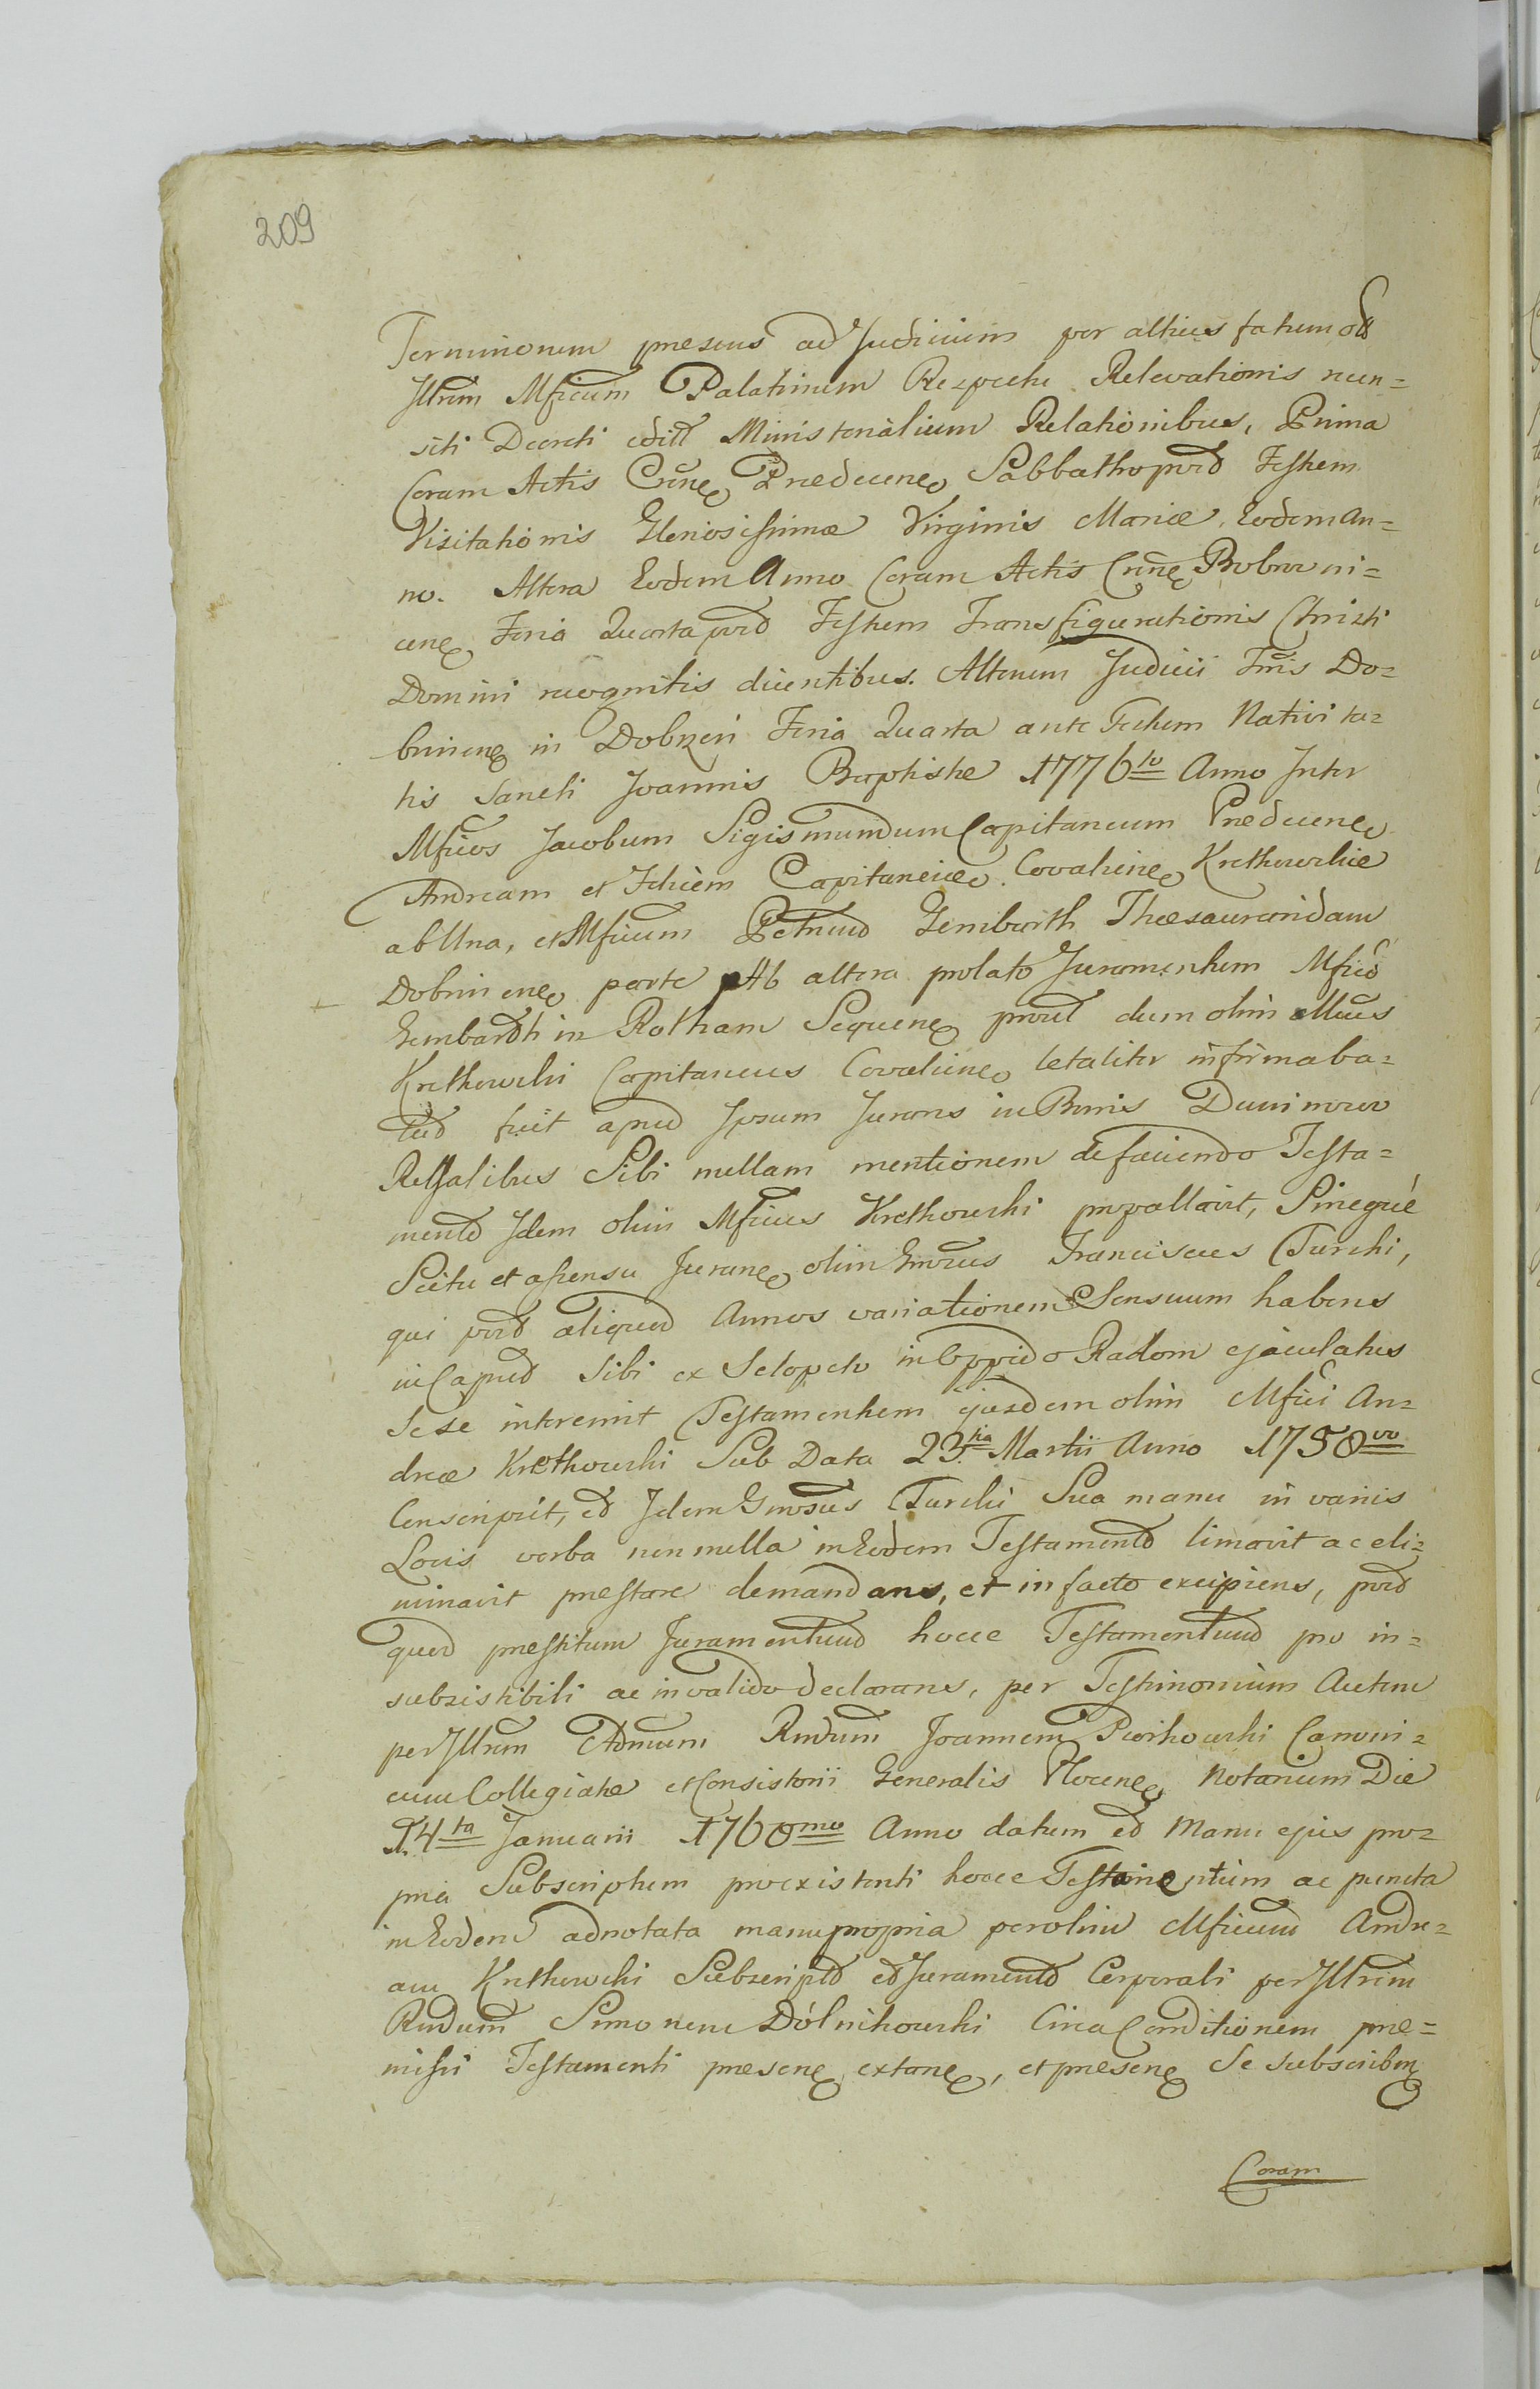 209
Terminorum præsens ad Judicium per altius fatum olt
Illrem Mficum Palatinum Respectu Relevationis nun=
siti Decreti edill Ministerialium Relationibus, Prima
Coram Actis Crne Prædecene Sabbatho prd Festum
Visitationis Gloriosissimæ Virginis Mariæ, Eodem An=
no. Altera Eodem Anno Coram Actis Crne Bobrowni=
cene Feria Quarta prd Festum Transfigurationis Christi
Domini recognitis dicentibus. Alterum Judicii Tris Do=
brinene in Dobrzyń Feria Quarta ante Festum Nativita=
tis Sancti Joannis Baptistæ 1776to Anno Inter
Mficos Jacobum Sigismundum Capitaneum Prædecene
Andream et Felicem Capitaneice Covaliene Krethowskie
ab Una, et Mficum Petrum Gembarth Thæsauraridam
Dobrinene parte Ab altera prolato Juramentum Mfico
Gembardt in Rotham Sequene prout dum olim Mficus
Krethowski Capitaneus Covaliene letaliter infirmaba=
tur fuit apud Ipsum Jurans in Bonis Duninowo
Relsalibus Sibi nullam mentionem de faciendo Testa=
mento Idem olim Mficus Krethowski propallavit, Sineque
Scitu et assensu Jurane olim Gnrosus Franciscus Turski,
qui prd aliquod Annos variationem Sensuum habens
in Caput Sibi ex Sclopeto in Oppido Radom ejaculatus
Sese interemit Testamentum ejusdem olim Mfici An=
dreæ Krethowski Sub Data 23tia Martii Anno 1758vo
Conscripsit, et Idem Gnrosus Turski Sua manu in variis
Locis verba nonnulla in Eodem Testamento limavit ac eli=
minavit præstare demandans, et in facto excipiens, prd
quod præstitum Juramentum hocce Testamentum pro in=
subsistibili ac invalido declarans, per Testimonium Autem
per Illrem Admum Rndum Joannem Piorkowski Canoni=
cum Collegiatæ et Consistorii Generalis Plocene Notarium Die
14ta Januarii 1760mo Anno datum et Manu ejus pro=
pria Subscriptum proexistenti hocce Testamentum ac puncta
in Eodem adnotata manu propria per olim Mficum Andre=
am Krethowski Subscripto et Juramento Corporali per Illrem
Rndum Simonem Dólnikowski Circa Conditionem præ=
missi Testamenti præsene extane, et præsene Se subscribene
Coram